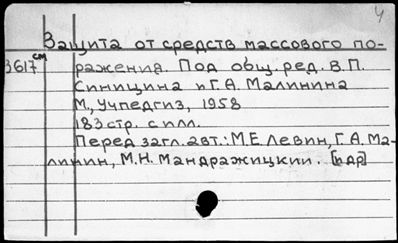 Ч
Защита от средств массового по-
3617 см
ражения. Под общ. ред. В.П.
Синицина и Г.А. Малинина
М., Учпедгиз, 1958
183 стр. с илл.
Перед загл. авт.: М.Е. Левин, Г.А. Ма-
линин, М.Н. Мандражицкий. [и др]